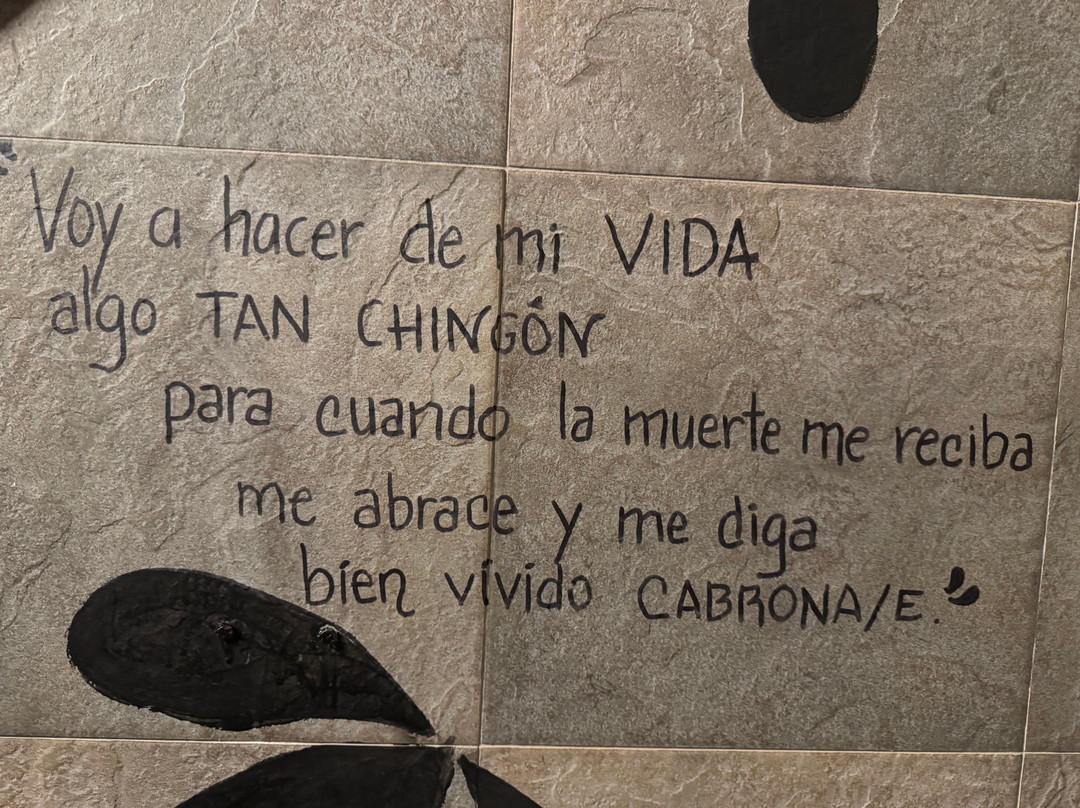 "Voy a hacer de mi VIDA
algo TAN CHINGÓN
para cuando la muerte me reciba
me abrace y me diga
bien vivido CABRONA/E."